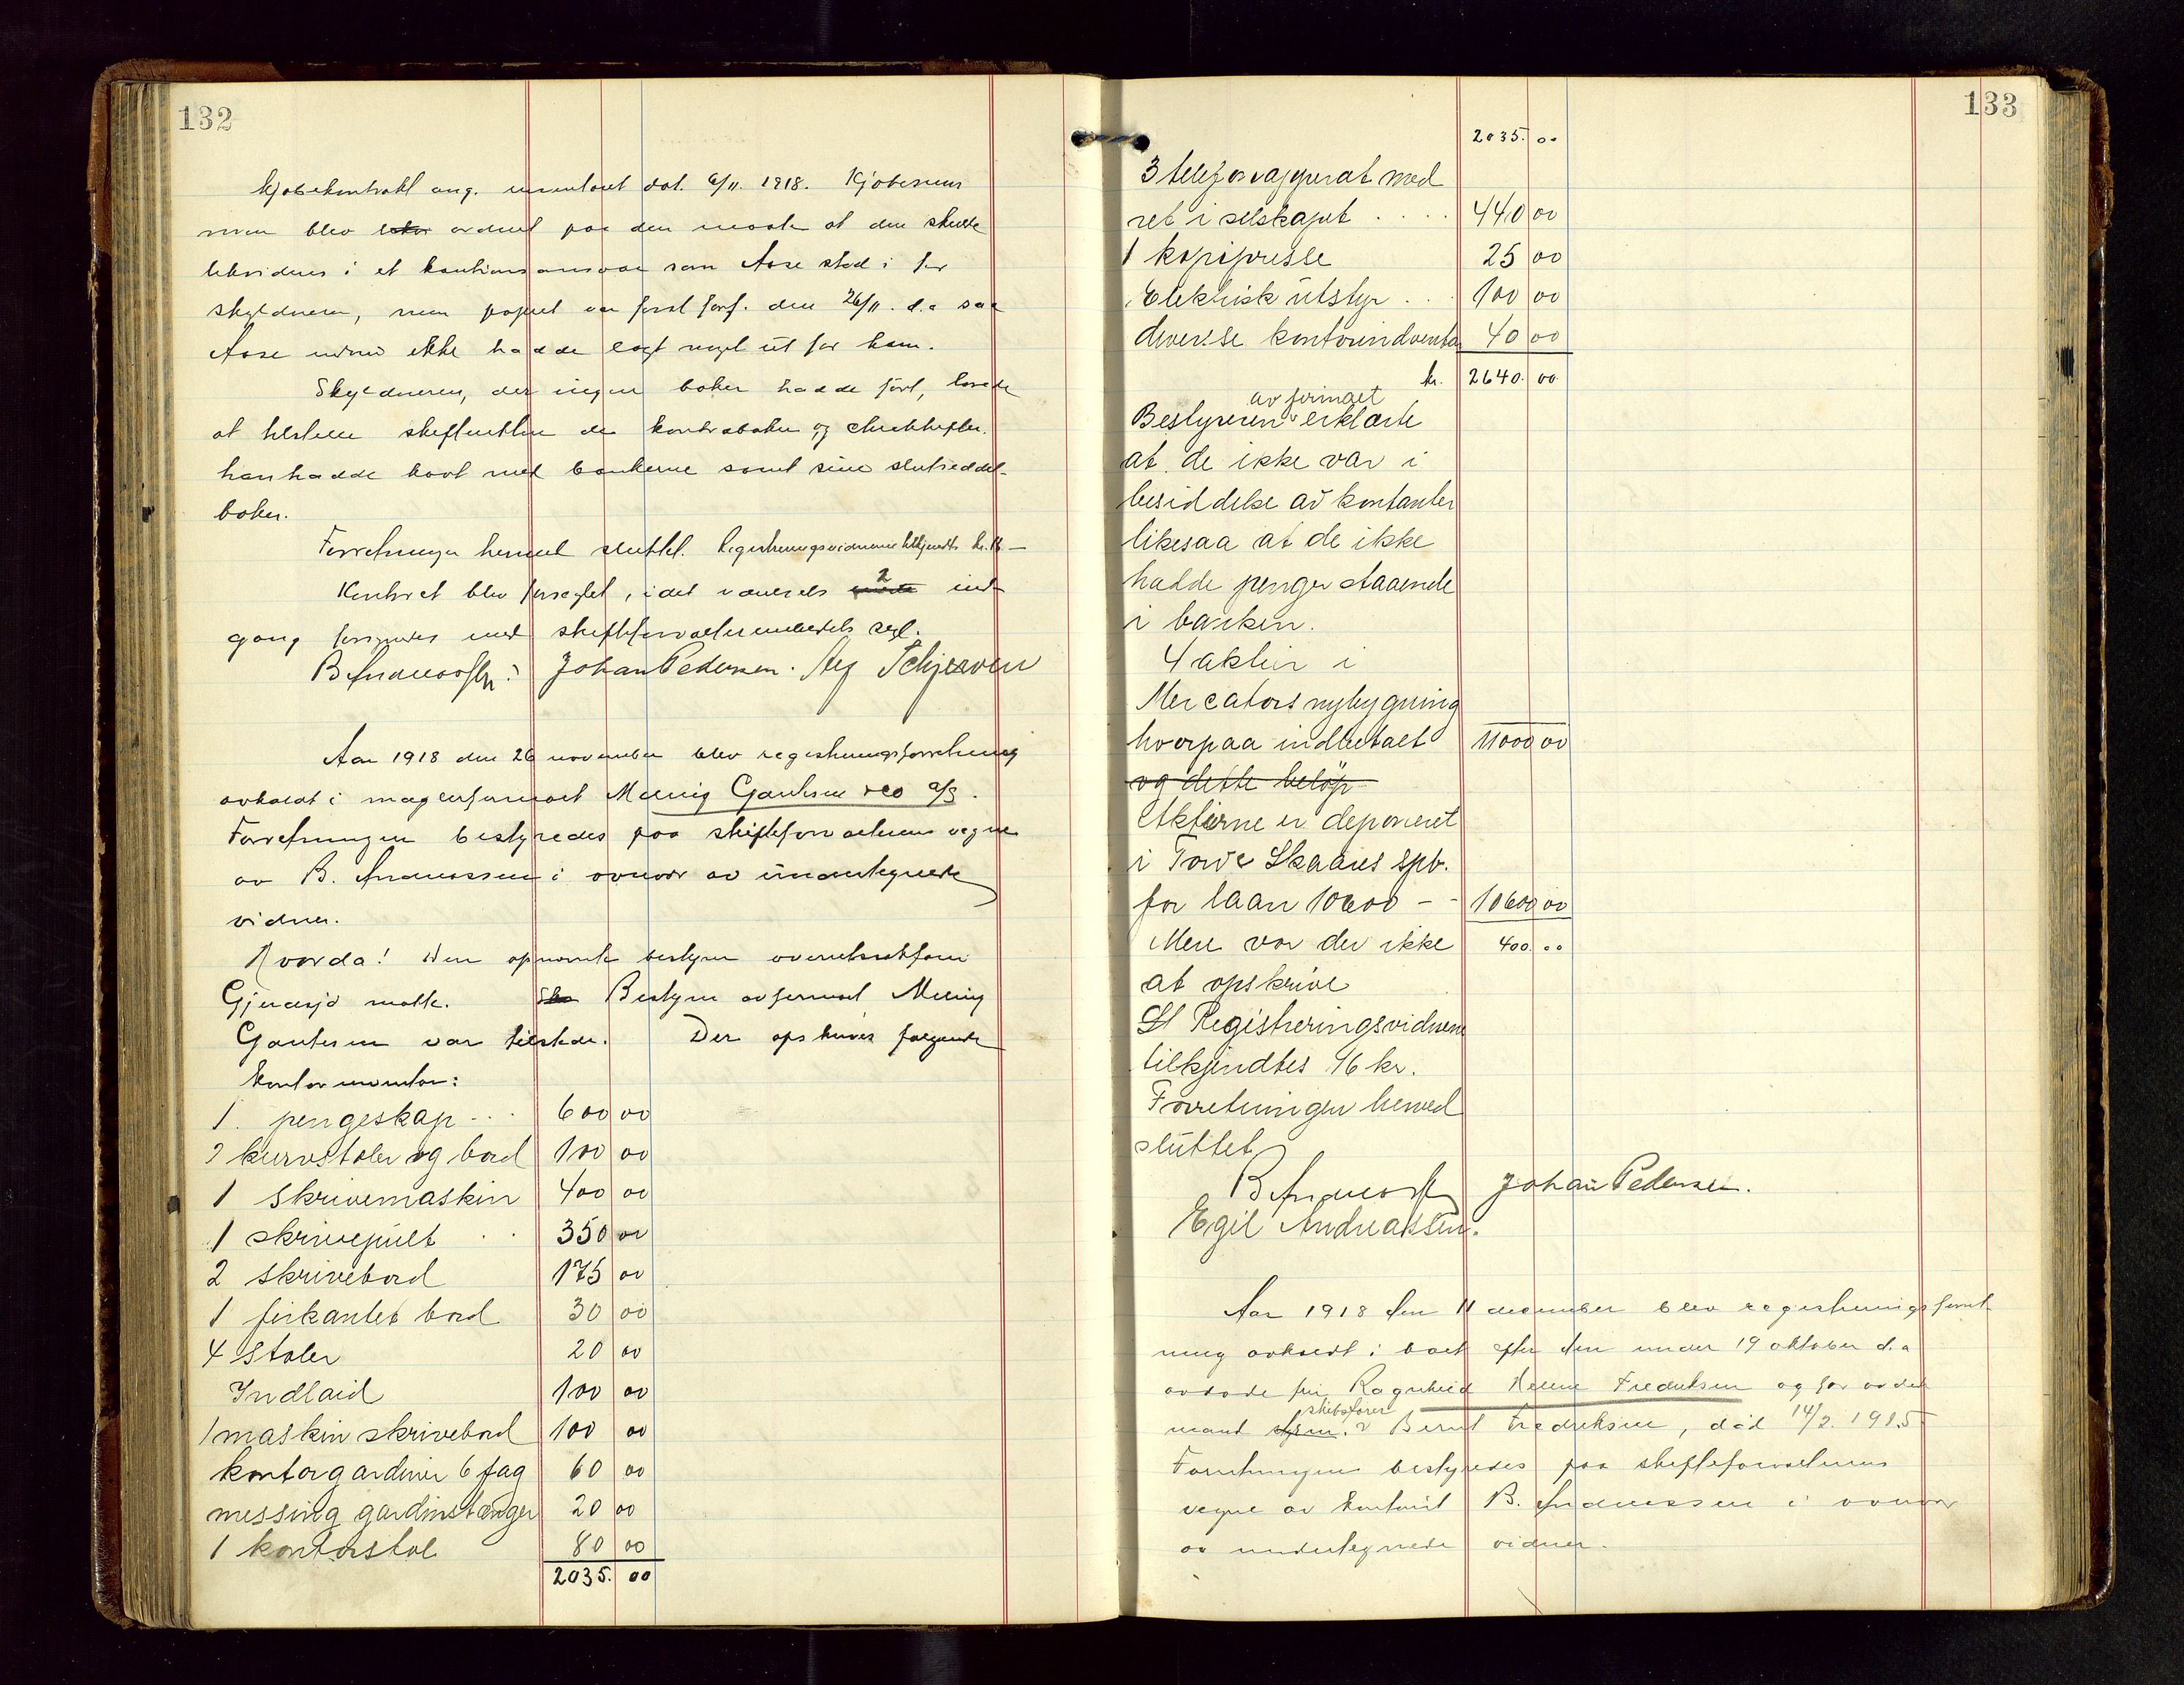 132
Kjøbekontrakt ang. inventaret dat. 6/11. 1918. Kjøbesum
men blev ordnet paa den maate at den skulde
likvideres i et kautionsansvar som Aase stod i for
skyldneren, men papiret var først forf. den 26/11. d.a saa
Aase endnu ikke hadde lagt noget ut for ham.
Skyldneren, der ingen bøker hadde ført, lovede
at tilstille skifteretten de kontrabøker og chekhefter
han hadde havt med bankerne samt sine slutseddel-
bøker.
Forretningen hermed sluttet. Registreringsvidnerne tilkjendtes kr. 16 -
Kontoret blev forseglet, idet værelsets 2 ind
gang forsynedes med skifteforvalterembedets segl.
B Andreassen. Johan Pedersen. Aug Schjerven
Aar 1918 den 26 november blev registreringsforretning
avholdt i mæglerfirmaet Melling Gautesen & co a/s.
Forretningen bestyredes paa skifteforvalterens vegne
av B. Andreassen i overvær av undertegnede
vidner.
Hvorda! Den opnævnte bestyrer overretssakfører
Gjersjø møtte. Bestyrer av firmaet Melling
Gautesen var tilstede. Der opskrives følgende
Kontorinventar:
1 pengeskap - . . 600 00
2 kurvstoler og bord 100 00
1 skrivemaskin 400 00
1 skrivepult . . 350 00
2 skrivebord 175 00
1 firkantet bord 30 00
4 stoler 20 00
Indlaid 100 00
1 maskin skrivebord 100 00
kontorgardiner 6 fag 60 00
messing gardinstænger 20 00
1 kontorstol 80 00
2035. 00
133
2035. 00
3 telefonapparat med
ret i selskapet . . . . 440 00
1 kopipresse 25 00
Elektrisk utstyr . . . 100 00
diverse kontorindventar 40 00
kr. 2640. 00
av firmaet
Bestyreren erklærte
at de ikke var i
besiddelse av kontanter
likesaa at de ikke
hadde penger staaende
i banken.
4 aktier i
Mercators nybygning
hvorpaa indbetalt 11000 00
og dette beløp
Aktierne er deponeret
i Skaares spb.
for laan 10600 - - 10600 00
Mere var der ikke 400. 00
at opskrive
Registreringsvidnerne
tilkjendtes 16 kr.
Forretningen hermed
sluttet
B Andreassen Johan Pedersen.
Egil Andreassen.
Aar 1918 den 11 december blev registreringsforret
ning avholdt i boet efter den under 19 oktober d.a
avdøde fru Ragnhild Helene Fredriksen og før avdøde
skibsfører
mand Bernt Fredriksen, død 14/2. 1915
Forretningen bestyredes paa skifteforvalterens
vegne av kontorist B. Andreassen i overvær
av undertegnede vidner.